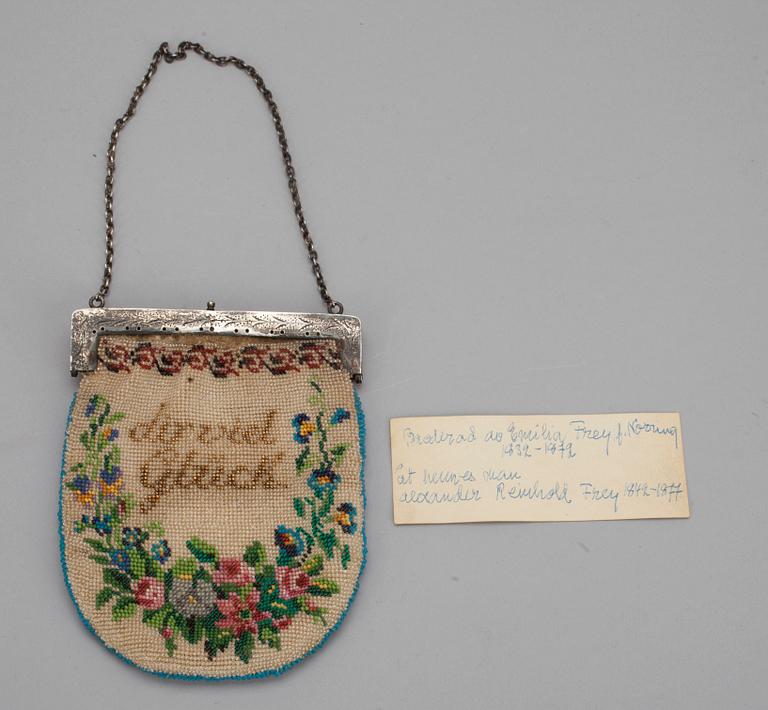 dir viel
Glück
Broderad av Emilia Frey f. Norring
1832-1872
åt hennes man
Alexander Reinhold Frey 1842-1877